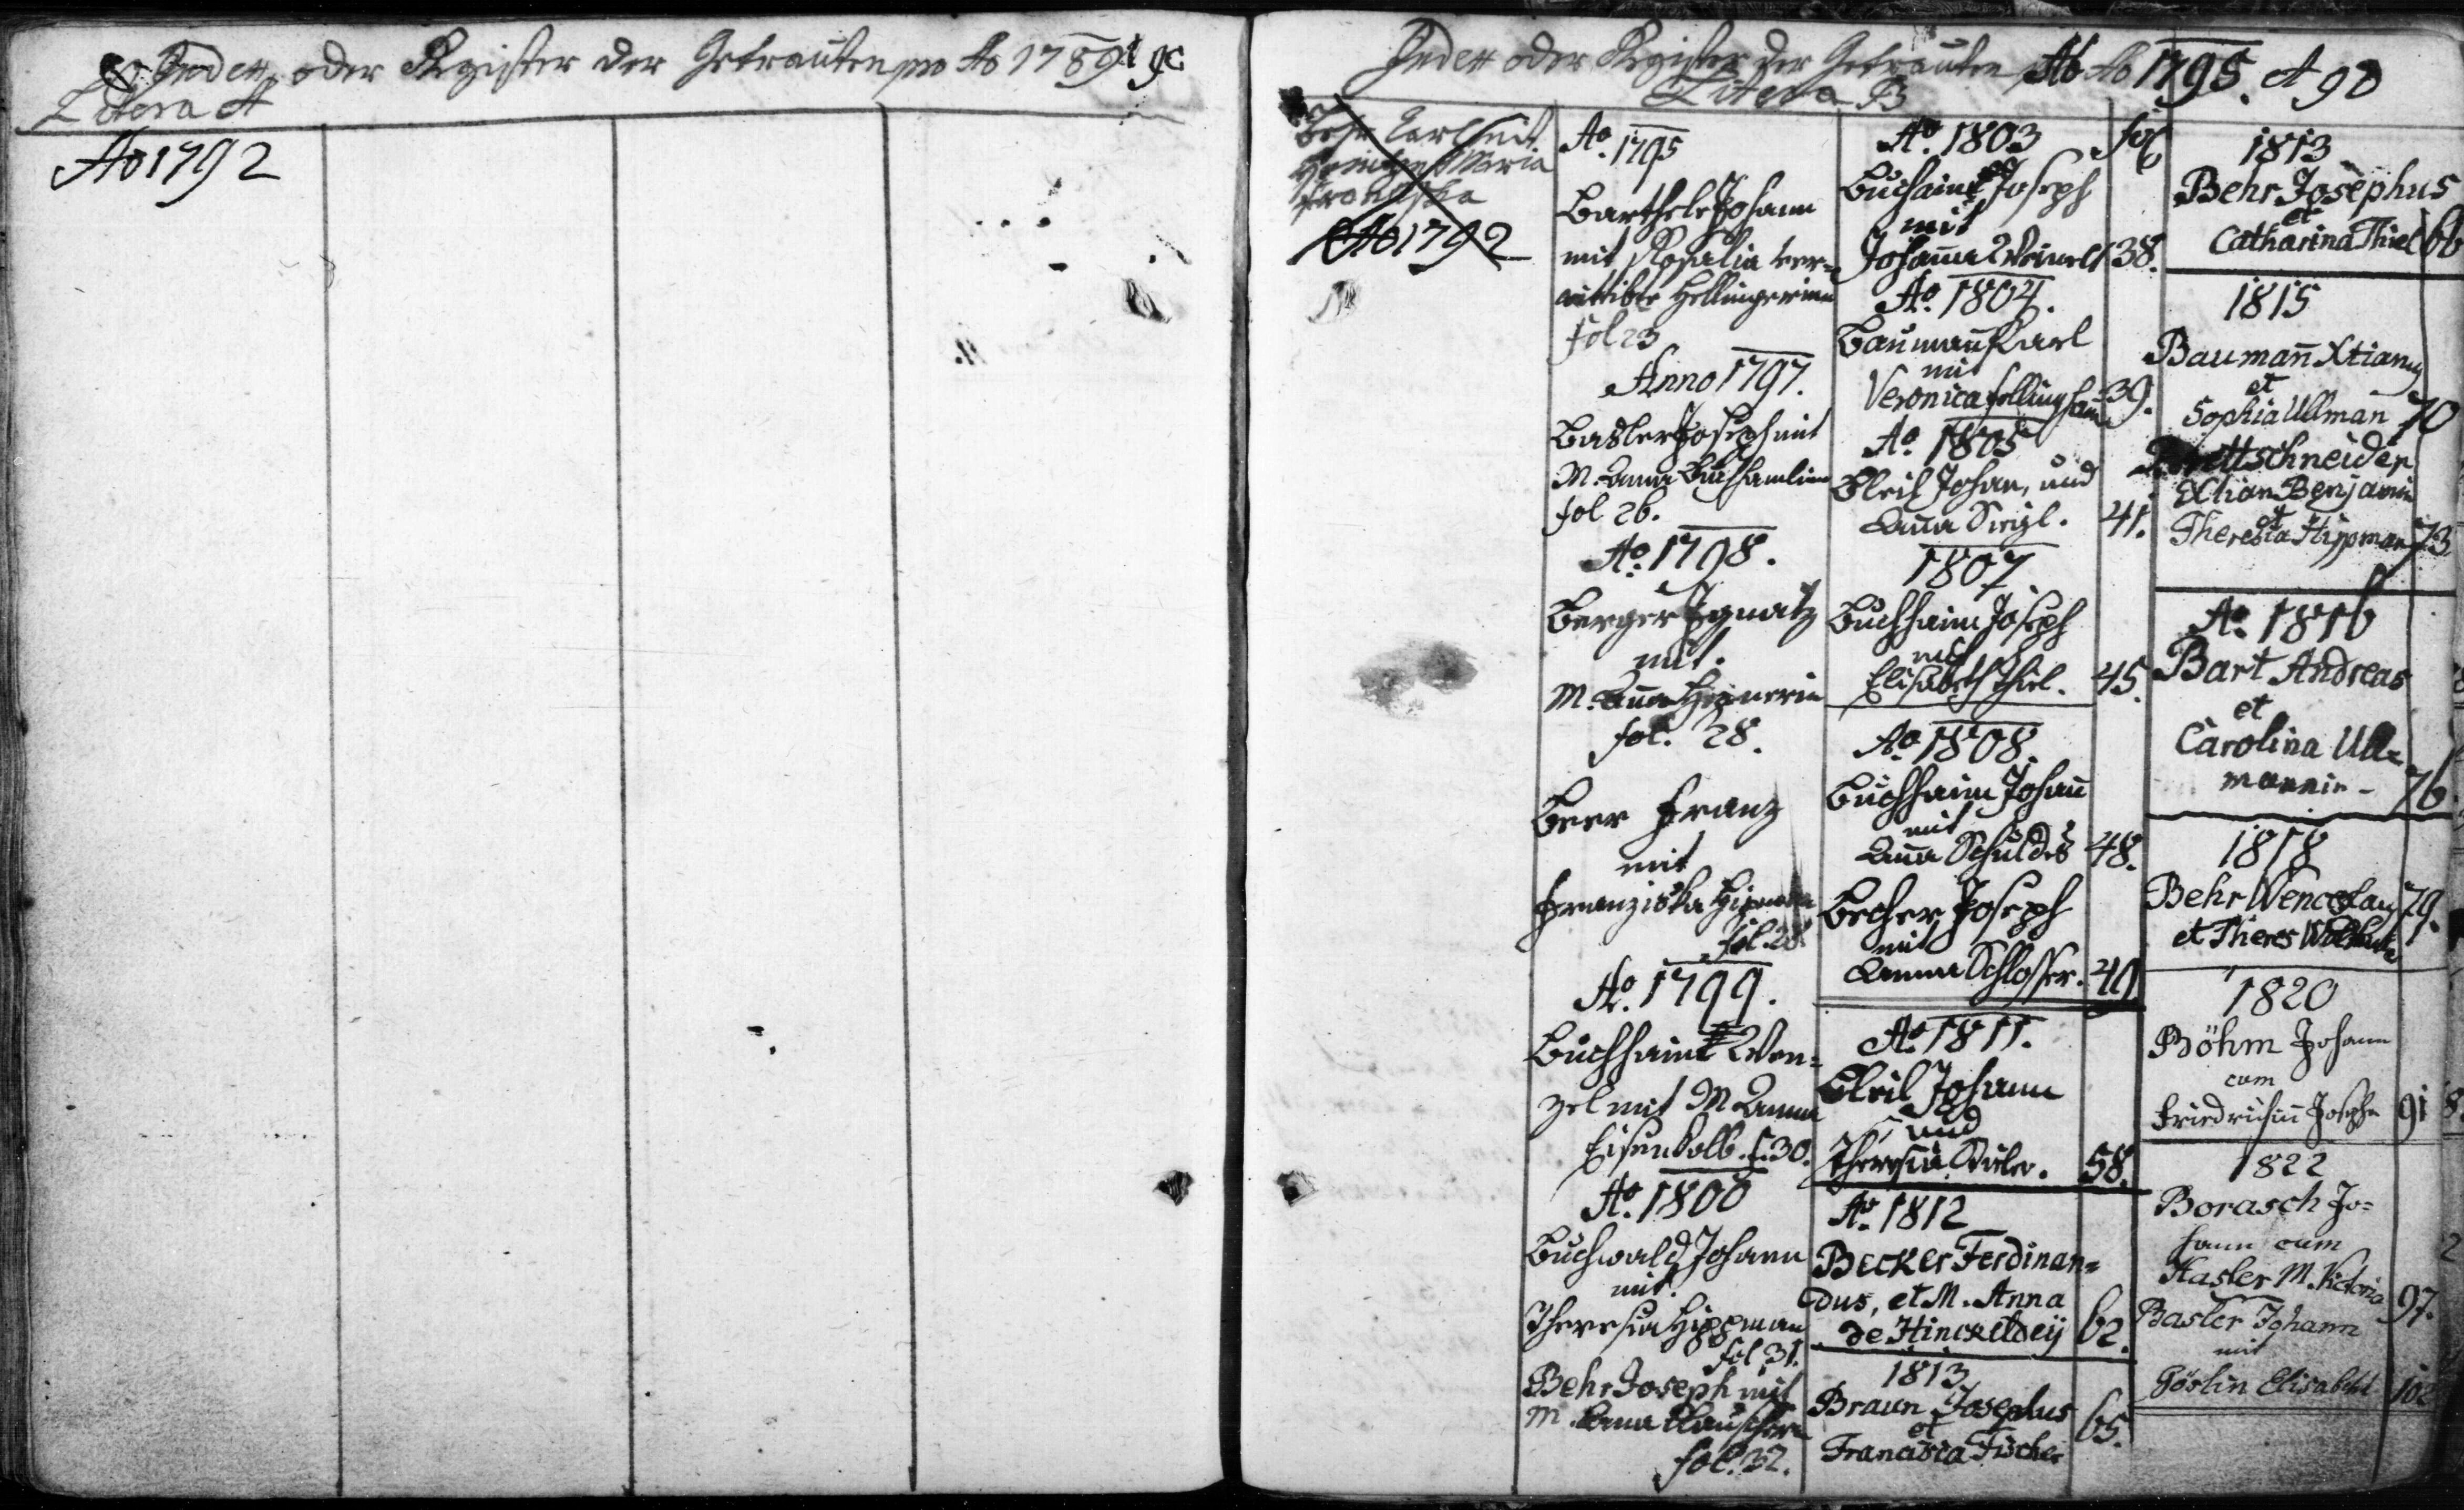 Index oder Register der Getrauten pro Ao 1789 et 90
Litera A
Ao 1792
Index oder Register der Getrauten Ab Ao 1795. et 98
Litera B
Behr Carl mit
Maria
Franziska
Ao 1792
Ao. 1795
Barthele Johann
mit Rosalia ver=
wittibte Hellingerinn
fol 23
Anno 1797.
Basler Joseph mit
M. Anna Buchhamlinn
fol 26.
Ao. 1798.
Berger Ignatz
mit.
M. Anna
fol. 28.
Beer Franz
mit
Franziska
fol. 28
Ao. 1799.
Buchhaim Wen=
zel mit M Anna
Eisenkolb. f. 30.
Ao. 1800
Buchwald Johann
mit.
Theresia Hippman
fol 31.
Behr Joseph mit
M. Anna
fol. 32.
Ao. 1803 fol
Buchaim Joseph
mit
Johanna Weinelt 38.
Ao. 1804.
Baumañ Karl
mit
Veronica 39.
Ao. 1805
Bleil Johan, und
Anna 41.
1807
Buchhaim Joseph
mit
Elisabeth Thiel. 45.
Ao. 1808.
Buchhaim Johañ
mit
Aña Schuldes 48.
Becher Joseph
mit
Anna Schlosser. 49
Ao. 1811.
Bleil Johann
und
Theresia 58.
Ao. 1812
Becker Ferdinan=
dus, et M. Anna
de Hinckeldeÿ 62.
1813
Braun Josephus
et
Francisca Fischer 65.
1813
Behr Josephus
et
Catharina Thiel 66
1815
Baumañ Xtian
et
Sophia Ullman 70
Brettschneider
Xtian Benjamin
et
Theresia Hippman 73
Ao. 1816
Bart Andreas
et
Carolina Ull=
mannin - 76
1818
Behr Wenceslaus 79.
et Theres
1820
Böhm Johann
cum
Friedrichin Josepha 91
1822
Borasch Jo=
hann cum
Hasler M. Victoria 97.
Basler Johann
mit
Göslin Elisabeth 102